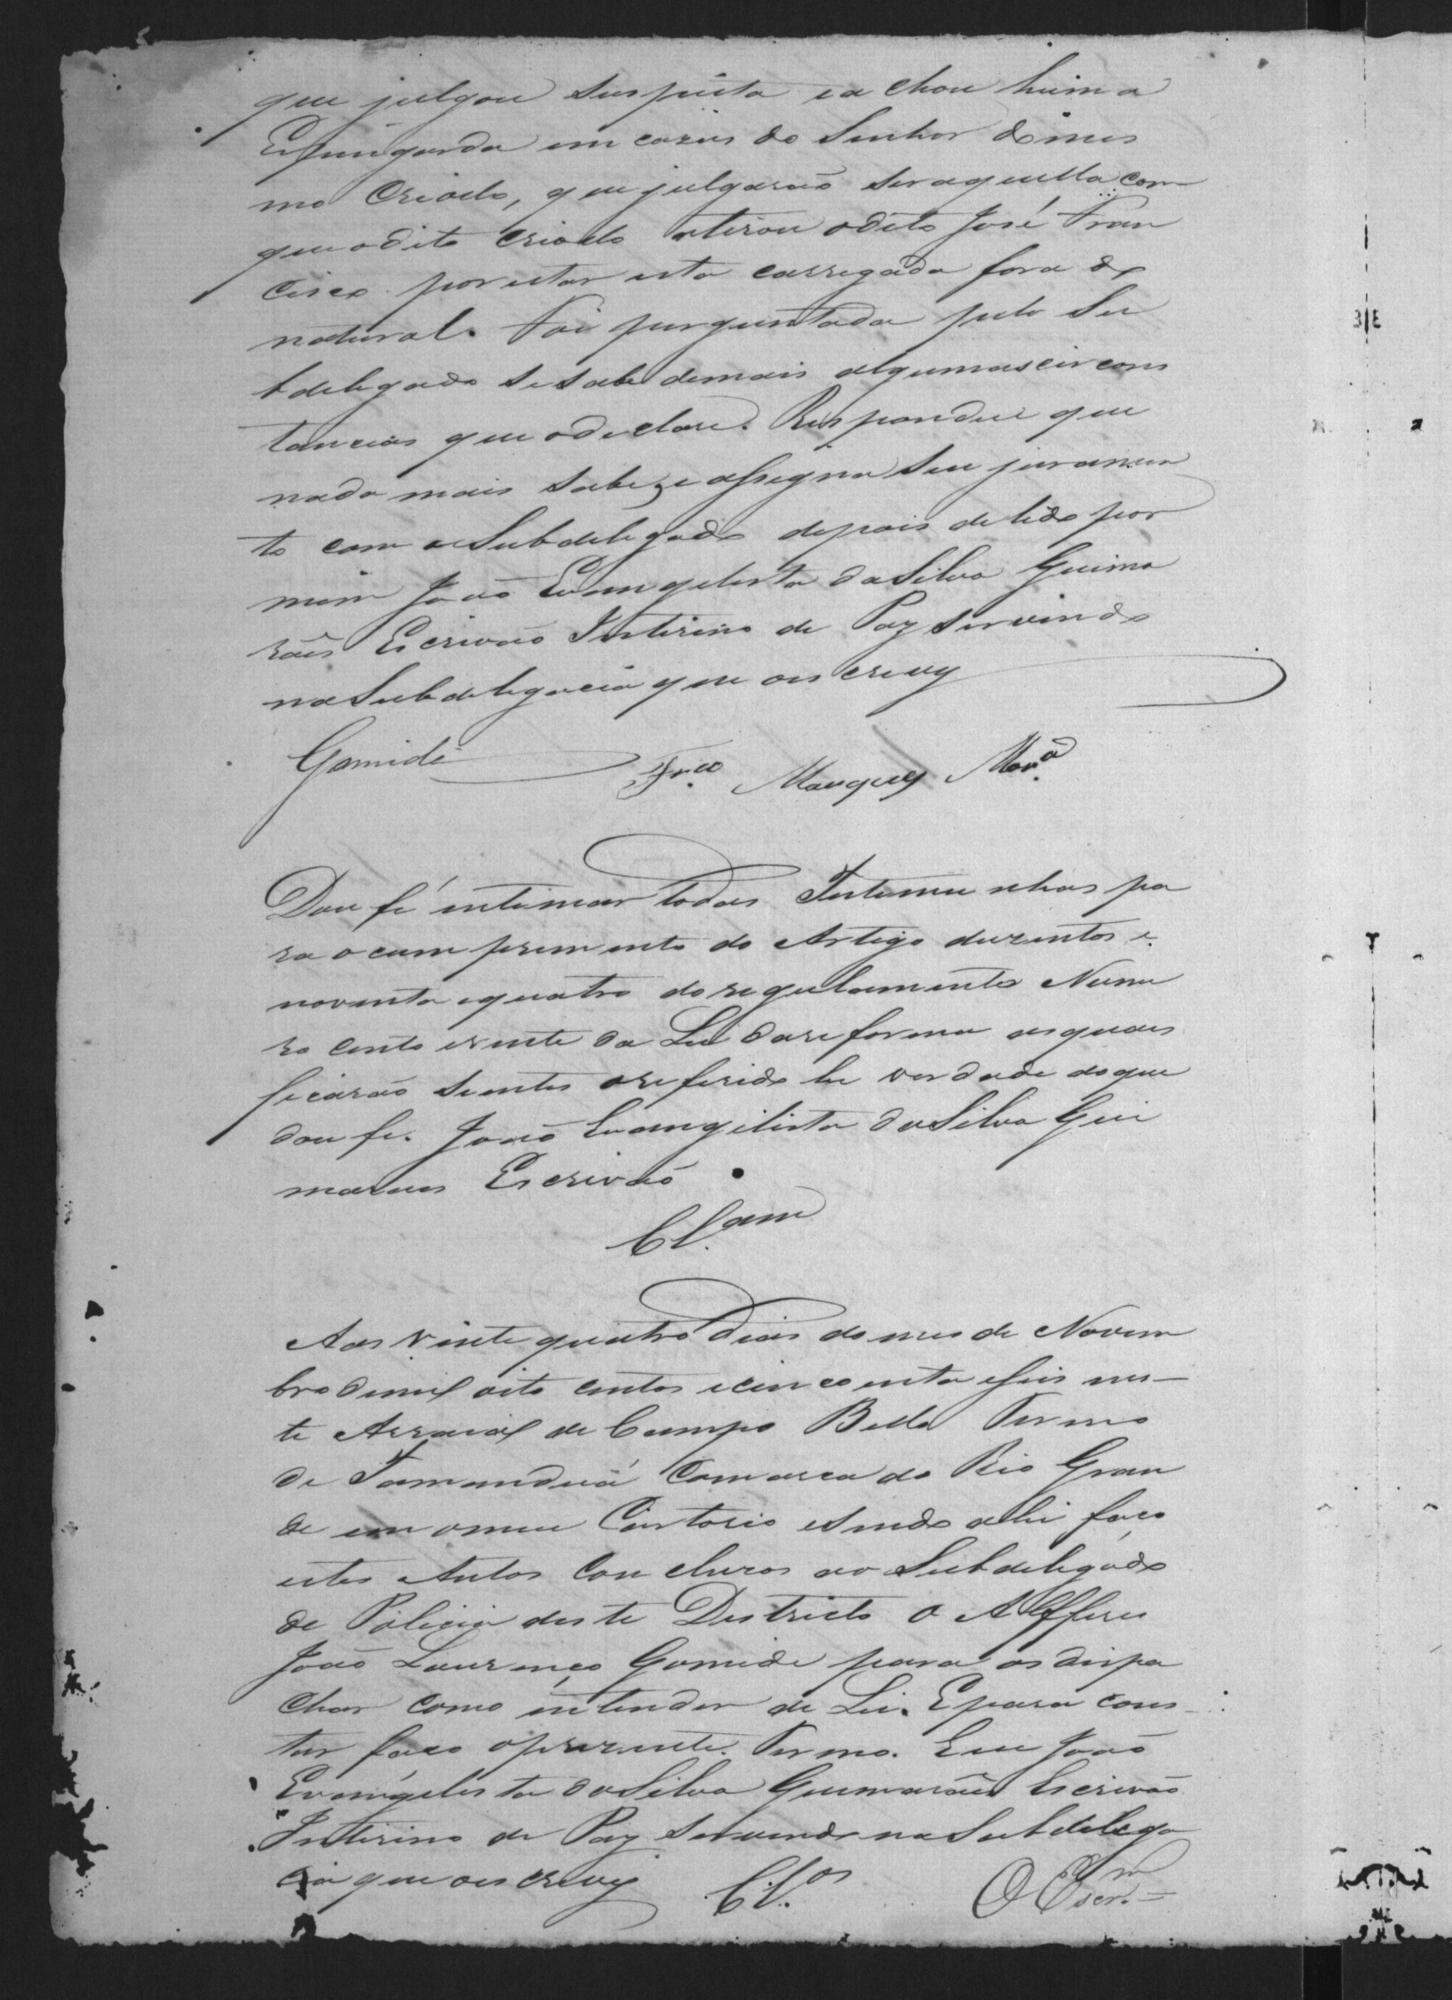 que julgou suspeita e a chou huma
Espingarda em cazas do Senhor do mes
mo Criado, que julgarão ser aquella com
que o dito criado atirou o dito José Fran
cisco por estar esta carregada fora do
natural. Foi perguntada pelo Su
bdelegado se sabe demais algumas circons
tancias que o declare. Respondeu que
nada mais sabe, e assigna seu juramen
to com o Subdelegado depois de lido por
mim João Evangelista da Silva Guima
rães Escrivão Interino de Paz servindo
na Subdelegacia que o escrevy
Gomide Fr.co Marques Mor.a
Dou fé intimar todas Testemunhas pa
ra o cumprimento do Artigo duzentos e
noventa e quatro do regulamento Nume
ro cento e vinte da Lei da reforma as quaes
ficarão sientes o referido he verdade do que
dou fe. João Evangelista da Silva Gui
maraes Escrivão
Cl.am
Aos vinte quatro Dias do mes de Novem
bro de mil oito centos e cincoenta e seis nes-
te Arraial de Campo Bello Termo
de Tamanduá Comarca do Rio Gran
de em o meu Cartorio e sendo ahi faço
estes Autos Concluzos ao Subdelegado
de Policia deste Districto o Alfferes
João Lourenço Gomide para os dispa
char como intender de Lei. E para cons
tar faço o prezente Termo. Eu João
Evangelista da Silva Guimarães Escrivão
Interino de Paz servindo na Subdelega
cia que o escrevy Cl.os O Escr.m